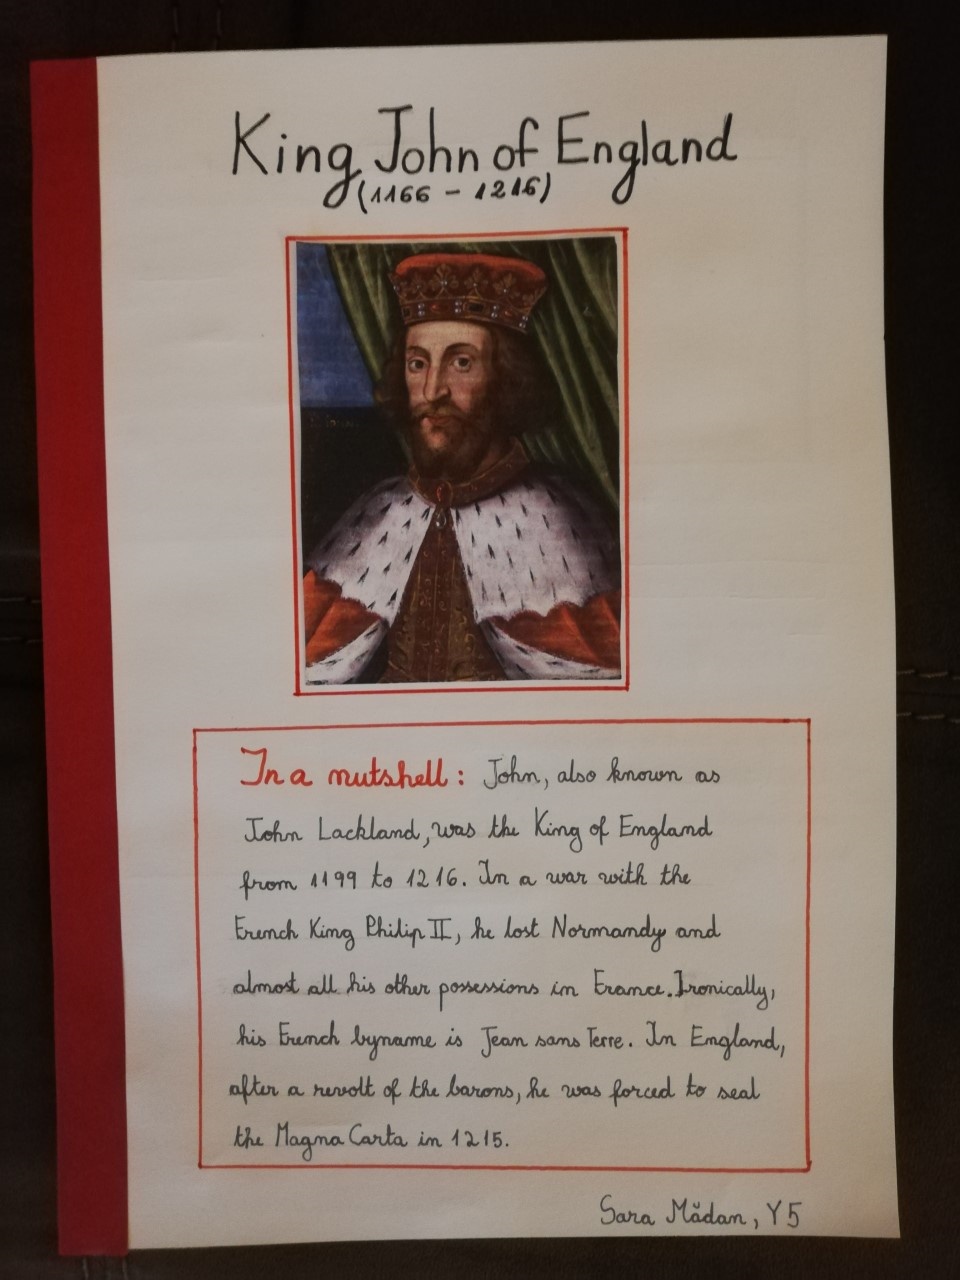 King John of England
(1166 - 1216)
In a nutshell: John, also known as
John Lackland, was the King of England
from 1199 to 1216. In a war with the
French King Philip II, he lost Normandy and
almost all his other possessions in France. Ironically,
his French byname is Jean sans Terre. In England,
after a revolt of the barons, he was forced to seal
the Magna Carta in 1215.
Sara Mădan, Y5